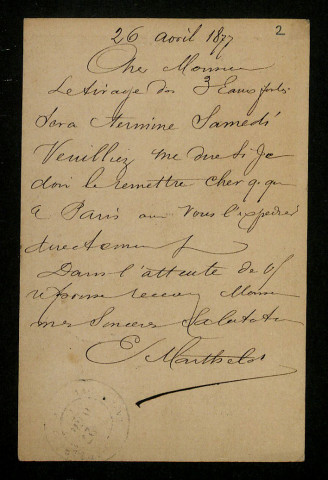 26 avril 1877
2
Cher Monsieur
Le tirage des 3 Eaux fortes
Sera terminé Samedi
Veuilliez me dire Si Je
dois le remettre chez
a Paris ou vous l'expédier
directement
Dans l'attente de
réponse recevez Monsieur
mes Sincères Salutations